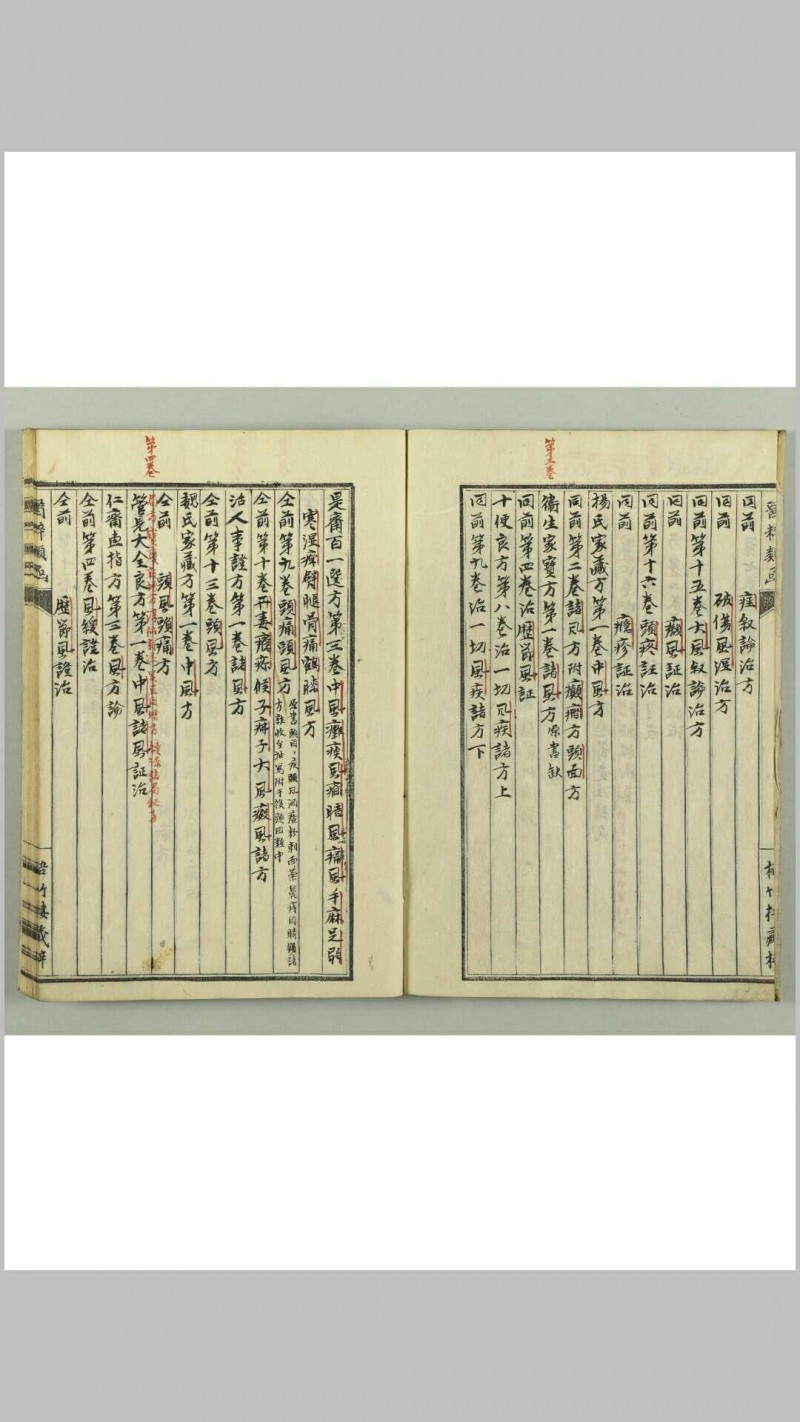 第三卷
同前　痓叙論治方
同前　破傷風湿治方
同前第十五卷大風叙論治方
同前　癜風証治
同前第十六卷頭疼証治
同前　癮疹証治
楊氏家藏方第一卷中風方
同前第二卷諸風方附癲癇方頭面方
衛生家寶方第一卷諸風方原書缺
同前第四卷治歷節風証
十便良方第八卷治一切風疾諸方上
同前第九卷治一切風疾諸方下
第四卷
是齋百一選方第三卷中風癱瘓風癇暗風癘風手麻足弱
寒湿痺臂腿骨痛鶴膝風方
仝前第九卷頭痛頭風方
仝前第十卷丹毒癮疹候子痱子大風癜風諸方
治人事證方第一卷諸風方
仝前第十三卷頭風方
魏氏家藏方第一卷中風方
仝前　頭風頭痛方
管見大全良方第一卷中風諸風証治
仁齋直指方第三卷風方論
仝前第四卷風緩證治
仝前　歷節風證治